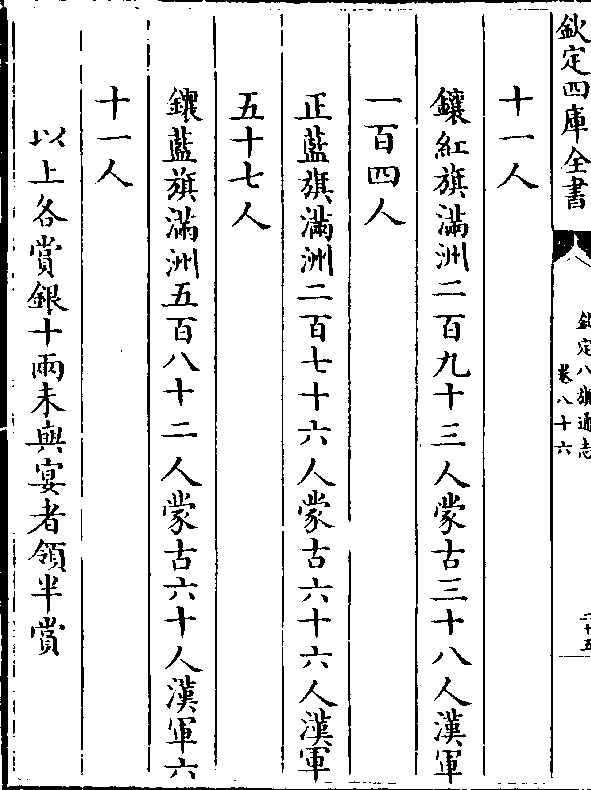 欽定四庫全書
欽定八旗通志
卷八十六
二十五
十一人
鑲紅旗滿洲二百九十三人蒙古三十八人漢軍
一百四人
正藍旗滿洲二百七十六人蒙古六十六人漢軍
五十七人
鑲藍旗滿洲五百八十二人蒙古六十人漢軍六
十一人
以上各賞銀十兩未與宴者領半賞